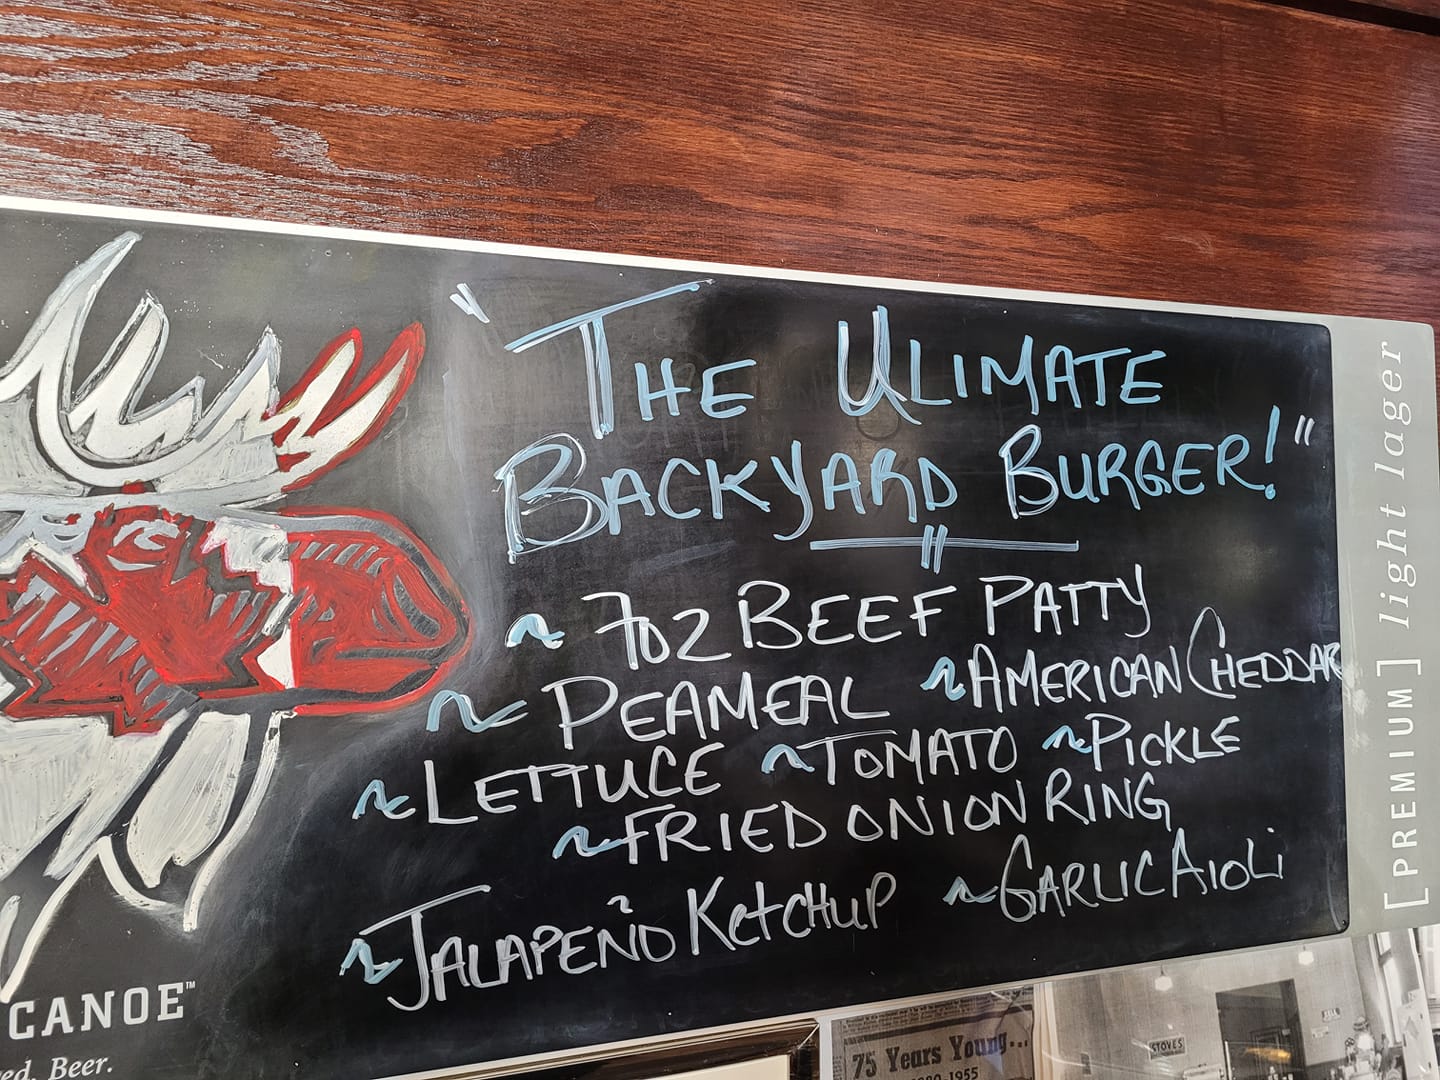 "THE ULIMATE
BACKYARD BURGER!"
~ 7OZ BEEF PATTY
~ PEAMEAL ~AMERICAN CHEDDAR
~LETTUCE ~TOMATO ~PICKLE
~FRIED ONION RING
~JALAPEÑO KETCHUP ~GARLIC AIOLI
[PREMIUM] light lager
CANOE™
ed. Beer.
75 Years Young...
1880-1955
STOVES